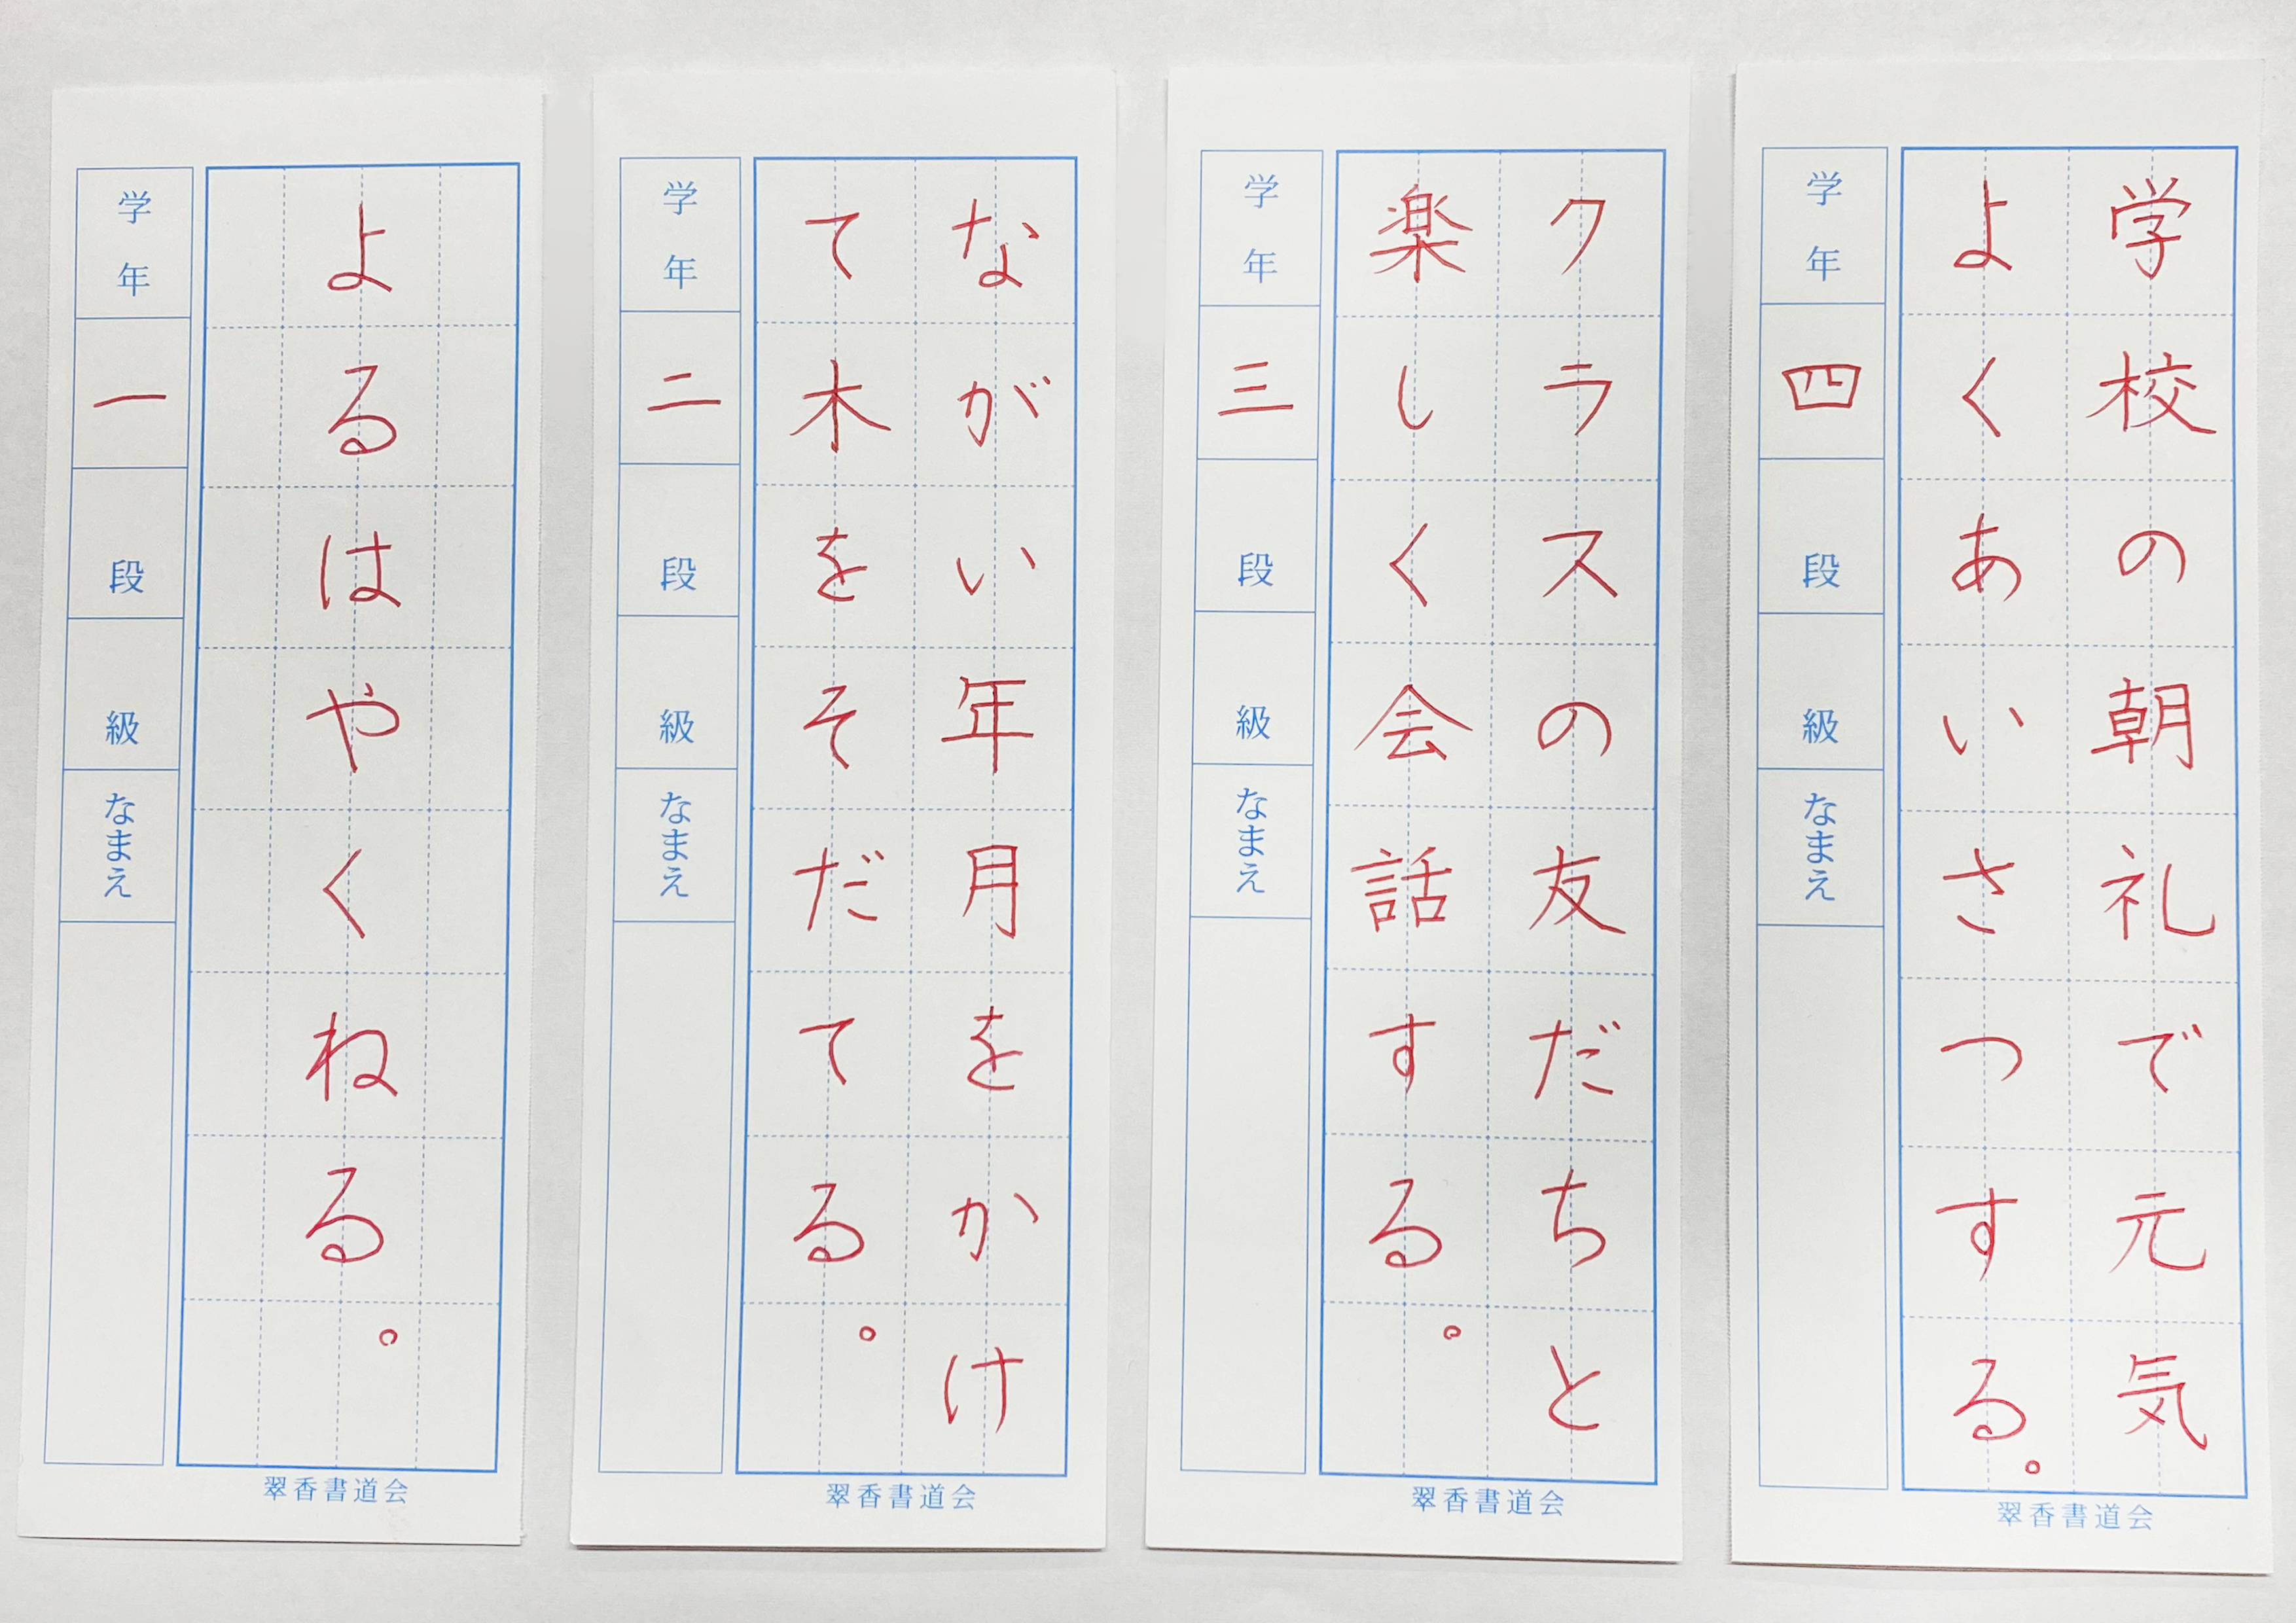 学校の朝礼で元気
よくあいさつする。
学年
四
段
級
なまえ
翠香書道会
クラスの友だちと
楽しく会話する。
学年
三
段
級
なまえ
翠香書道会
ながい年月をかけ
て木をそだてる。
学年
二
段
級
なまえ
翠香書道会
よるはやくねる。
学年
一
段
級
なまえ
翠香書道会